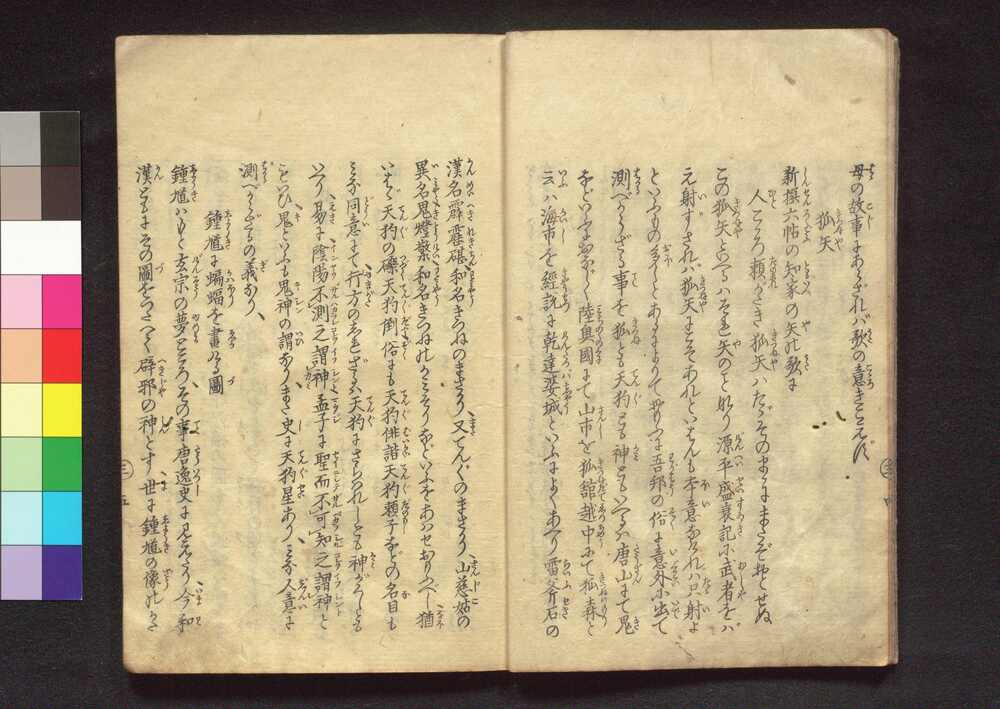 母の故事にあらざれバ歌の意きこえず
狐矢
新撰六帖の知家の矢の歌に
人ごゝろ頼がたき狐矢ハたゞそのまゝにまたぞ音せぬ
この狐矢といへるハそれ矢のことなり源平盛衰記に武者をバ
元射ずされバ狐矢にこそあれといはんも本意なけれハ只射よ
といふものをとあるによりて
吾邦の俗に意外に出て
測べからざる事を狐とも天狗とも神ともいへる唐山にて鬼
などいふがごとく陸奥國にて山市を狐舘越中にて狐森と
云ハ海市を経説に乾達婆城といふによくあへり雷斧石の
漢名霹靂碪和名きつねのまさかり又てんぐのまさかり山慈姑の
異名鬼燈檠和名きつねのかみそりなどいふをあハせおもふべし猶
いはゞ天狗の礫天狗倒俗にも天狗俳諧天狗頼子などの名目も
ミな同意にて行方のしれざるを天狗にさらハれしとも神がくしとも
いへり易に陰陽不測之謂神孟子に聖而不可知之謂神と
もいひ鬼といふも鬼神の謂なりまた史に天狗星ありミな人意に
測べからざるの義なり、
鍾馗に蝙蝠を畫ける圖
鍾馗ハもと玄宗の夢に
その事唐逸史に見えたり今和
漢ともにその圖をつたへて辟邪の神とす世に鍾馗の像の